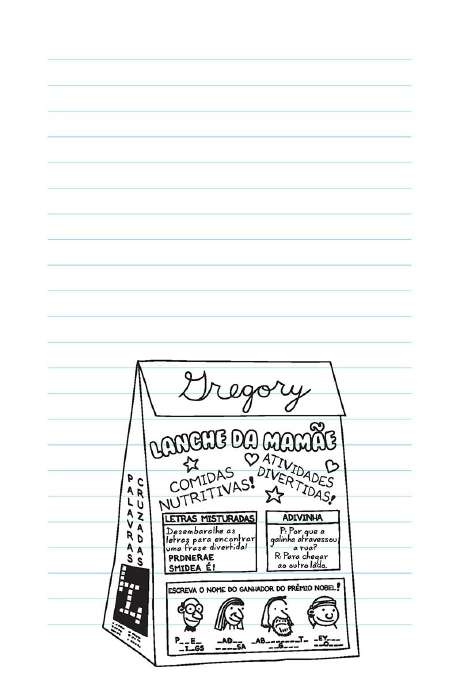 Gregory
LANCHE DA MAMÃE
COMIDAS
NUTRITIVAS!
ATIVIDADES
DIVERTIDAS!
PALAVRAS
CRUZADAS
LETRAS MISTURADAS
Desembaralhe as
letras para encontrar
uma frase divertida!
PRDNERAE
SMIDEA É!
ADIVINHA
P: Por que a
galinha atravessou
a rua?
R: Para chegar
ao outro lado.
ESCREVA O NOME DO GANHADOR DO PRÊMIO NOBEL!
P__E_
_I_GS
_AD__
___SA
_AB_____T_
__G__
_EY__
__O__